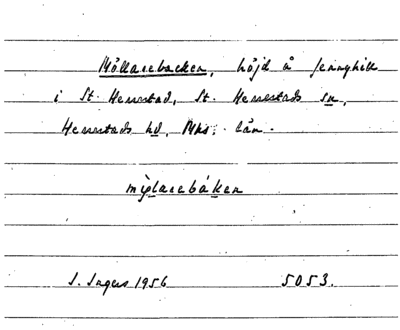 Möllarebacken, höjd å Jennyhill
i St. Herrstad, St. Herrestads sn,
Herrestads hd, Mhs. län.
mø̀larebáken
S. Ingers 1956 5053.